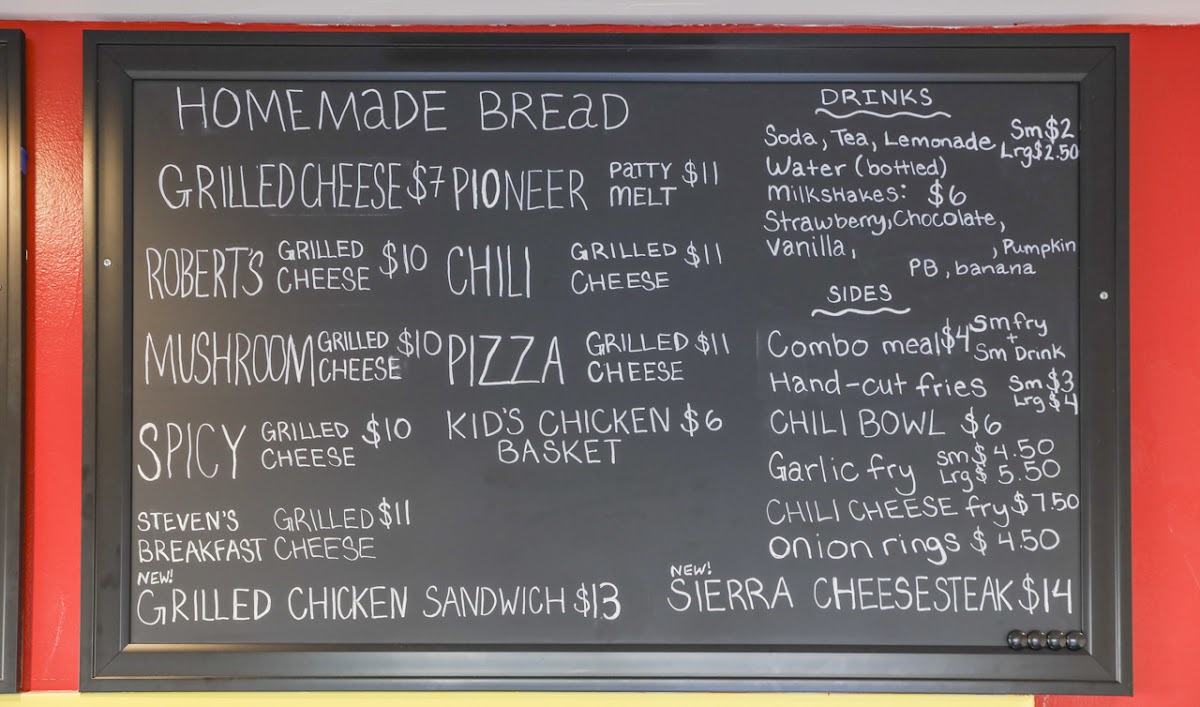 HOMEMADE BREAD
GRILLED CHEESE $7
ROBERT'S GRILLED CHEESE $10
MUSHROOM GRILLED CHEESE $10
SPICY GRILLED CHEESE $10
STEVEN'S BREAKFAST GRILLED CHEESE $11
NEW!
GRILLED CHICKEN SANDWICH $13
PIONEER PATTY MELT $11
CHILI GRILLED CHEESE $11
PIZZA GRILLED CHEESE $11
KID'S CHICKEN $6
BASKET
NEW!
SIERRA CHEESESTEAK $14
DRINKS
Soda, Tea, Lemonade Sm $2 Lrg $2.50
Water (bottled)
Milkshakes: $6
Strawberry, Chocolate,
Vanilla, , Pumpkin
PB, banana
SIDES
Combo meal $4 Sm fry + Sm Drink
Hand-cut fries Sm $3 Lrg $4
CHILI BOWL $6
Garlic fry Sm $4.50 Lrg $5.50
CHILI CHEESE fry $7.50
onion rings $4.50